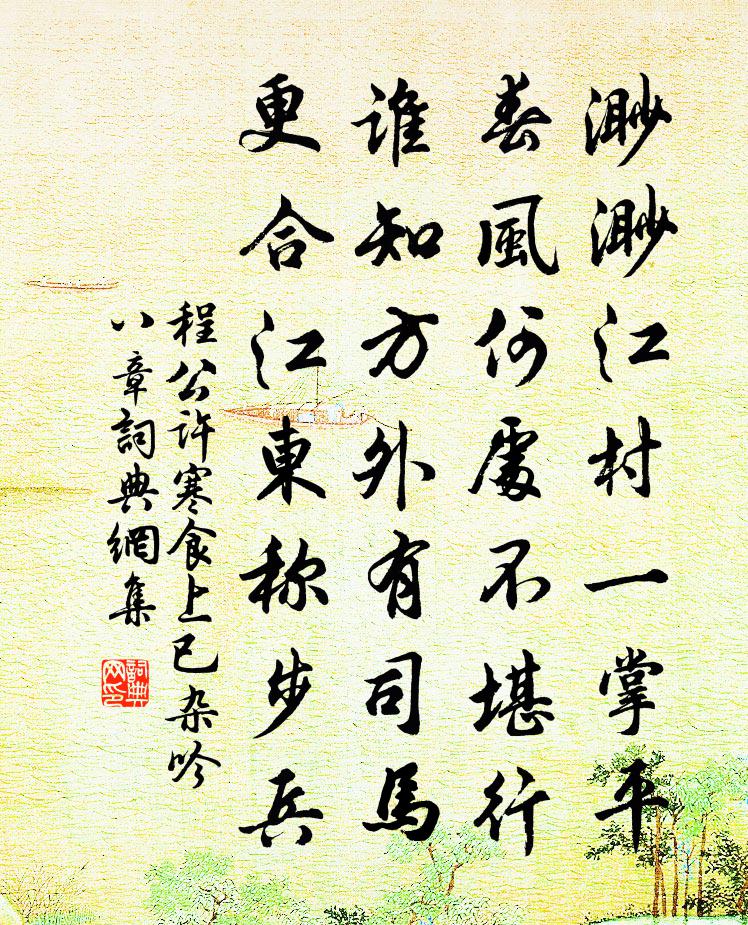 渺渺江村一掌平
春風何處不堪行
誰知方外有司馬
更合江東称步兵
程公许寒食上巳杂吟
八章詞典網集
詞典
网印